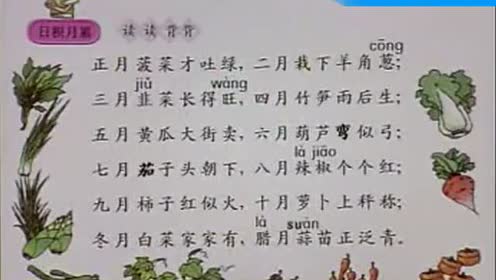 日积月累 读读背背
cōng
正月菠菜才吐绿，二月栽下羊角葱；
jiǔ wàng
三月韭菜长得旺，四月竹笋雨后生；
五月黄瓜大街卖，六月葫芦弯似弓；
là jiāo
七月茄子头朝下，八月辣椒个个红；
九月柿子红似火，十月萝卜上秤称；
là suàn
冬月白菜家家有，腊月蒜苗正泛青。